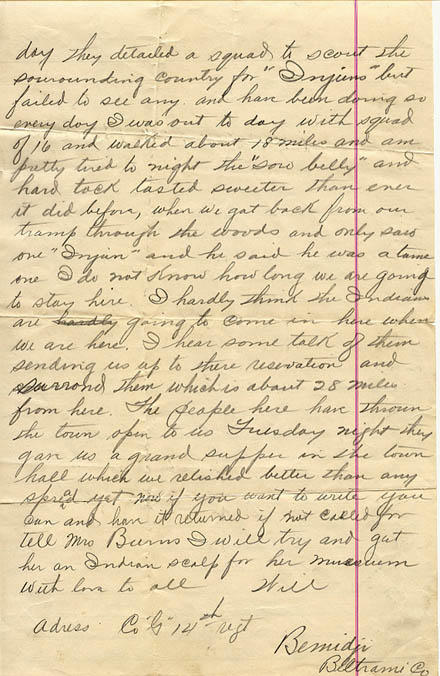 day they detailed a squad to scout the
sourrounding country for "Injuns" but
failed to see any. and have been doing so
every day I was out to day with squad
of 16 and walked about 18 miles and am
pretty tired to night the "sow belly" and
hard tack tasted sweeter than ever
it did before, when we got back from our
tramp through the woods and only saw
one "Injun" and he said he was a tame
one I do not know how long we are going
to stay hire. I hardly think the Indians
are hardly going to come in here when
we are here. I hear some talk of them
sending us up to there reservation and
surrond them which is about 28 miles
from here. The people here have thrown
the town open to us Tuesday night they
gave us a grand supper in the town
hall which we relished better than any
spre'd yet now if you want to write you
can and have it returned if not called for
tell Mrs Burns I will try and get
her an Indian scalp for her museum
with love to all Will
Adress Co "G" 14th regt
Bemidji
Beltrami Co